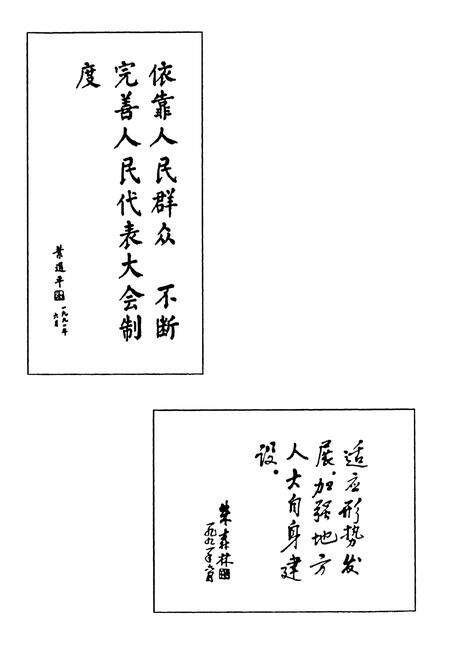 依靠人民群众 不断
完善人民代表大会制
度
叶选平
一九九一年
六月
适应形势发
展。加强地方
人大自身建
设。
朱森林
一九九一年六月